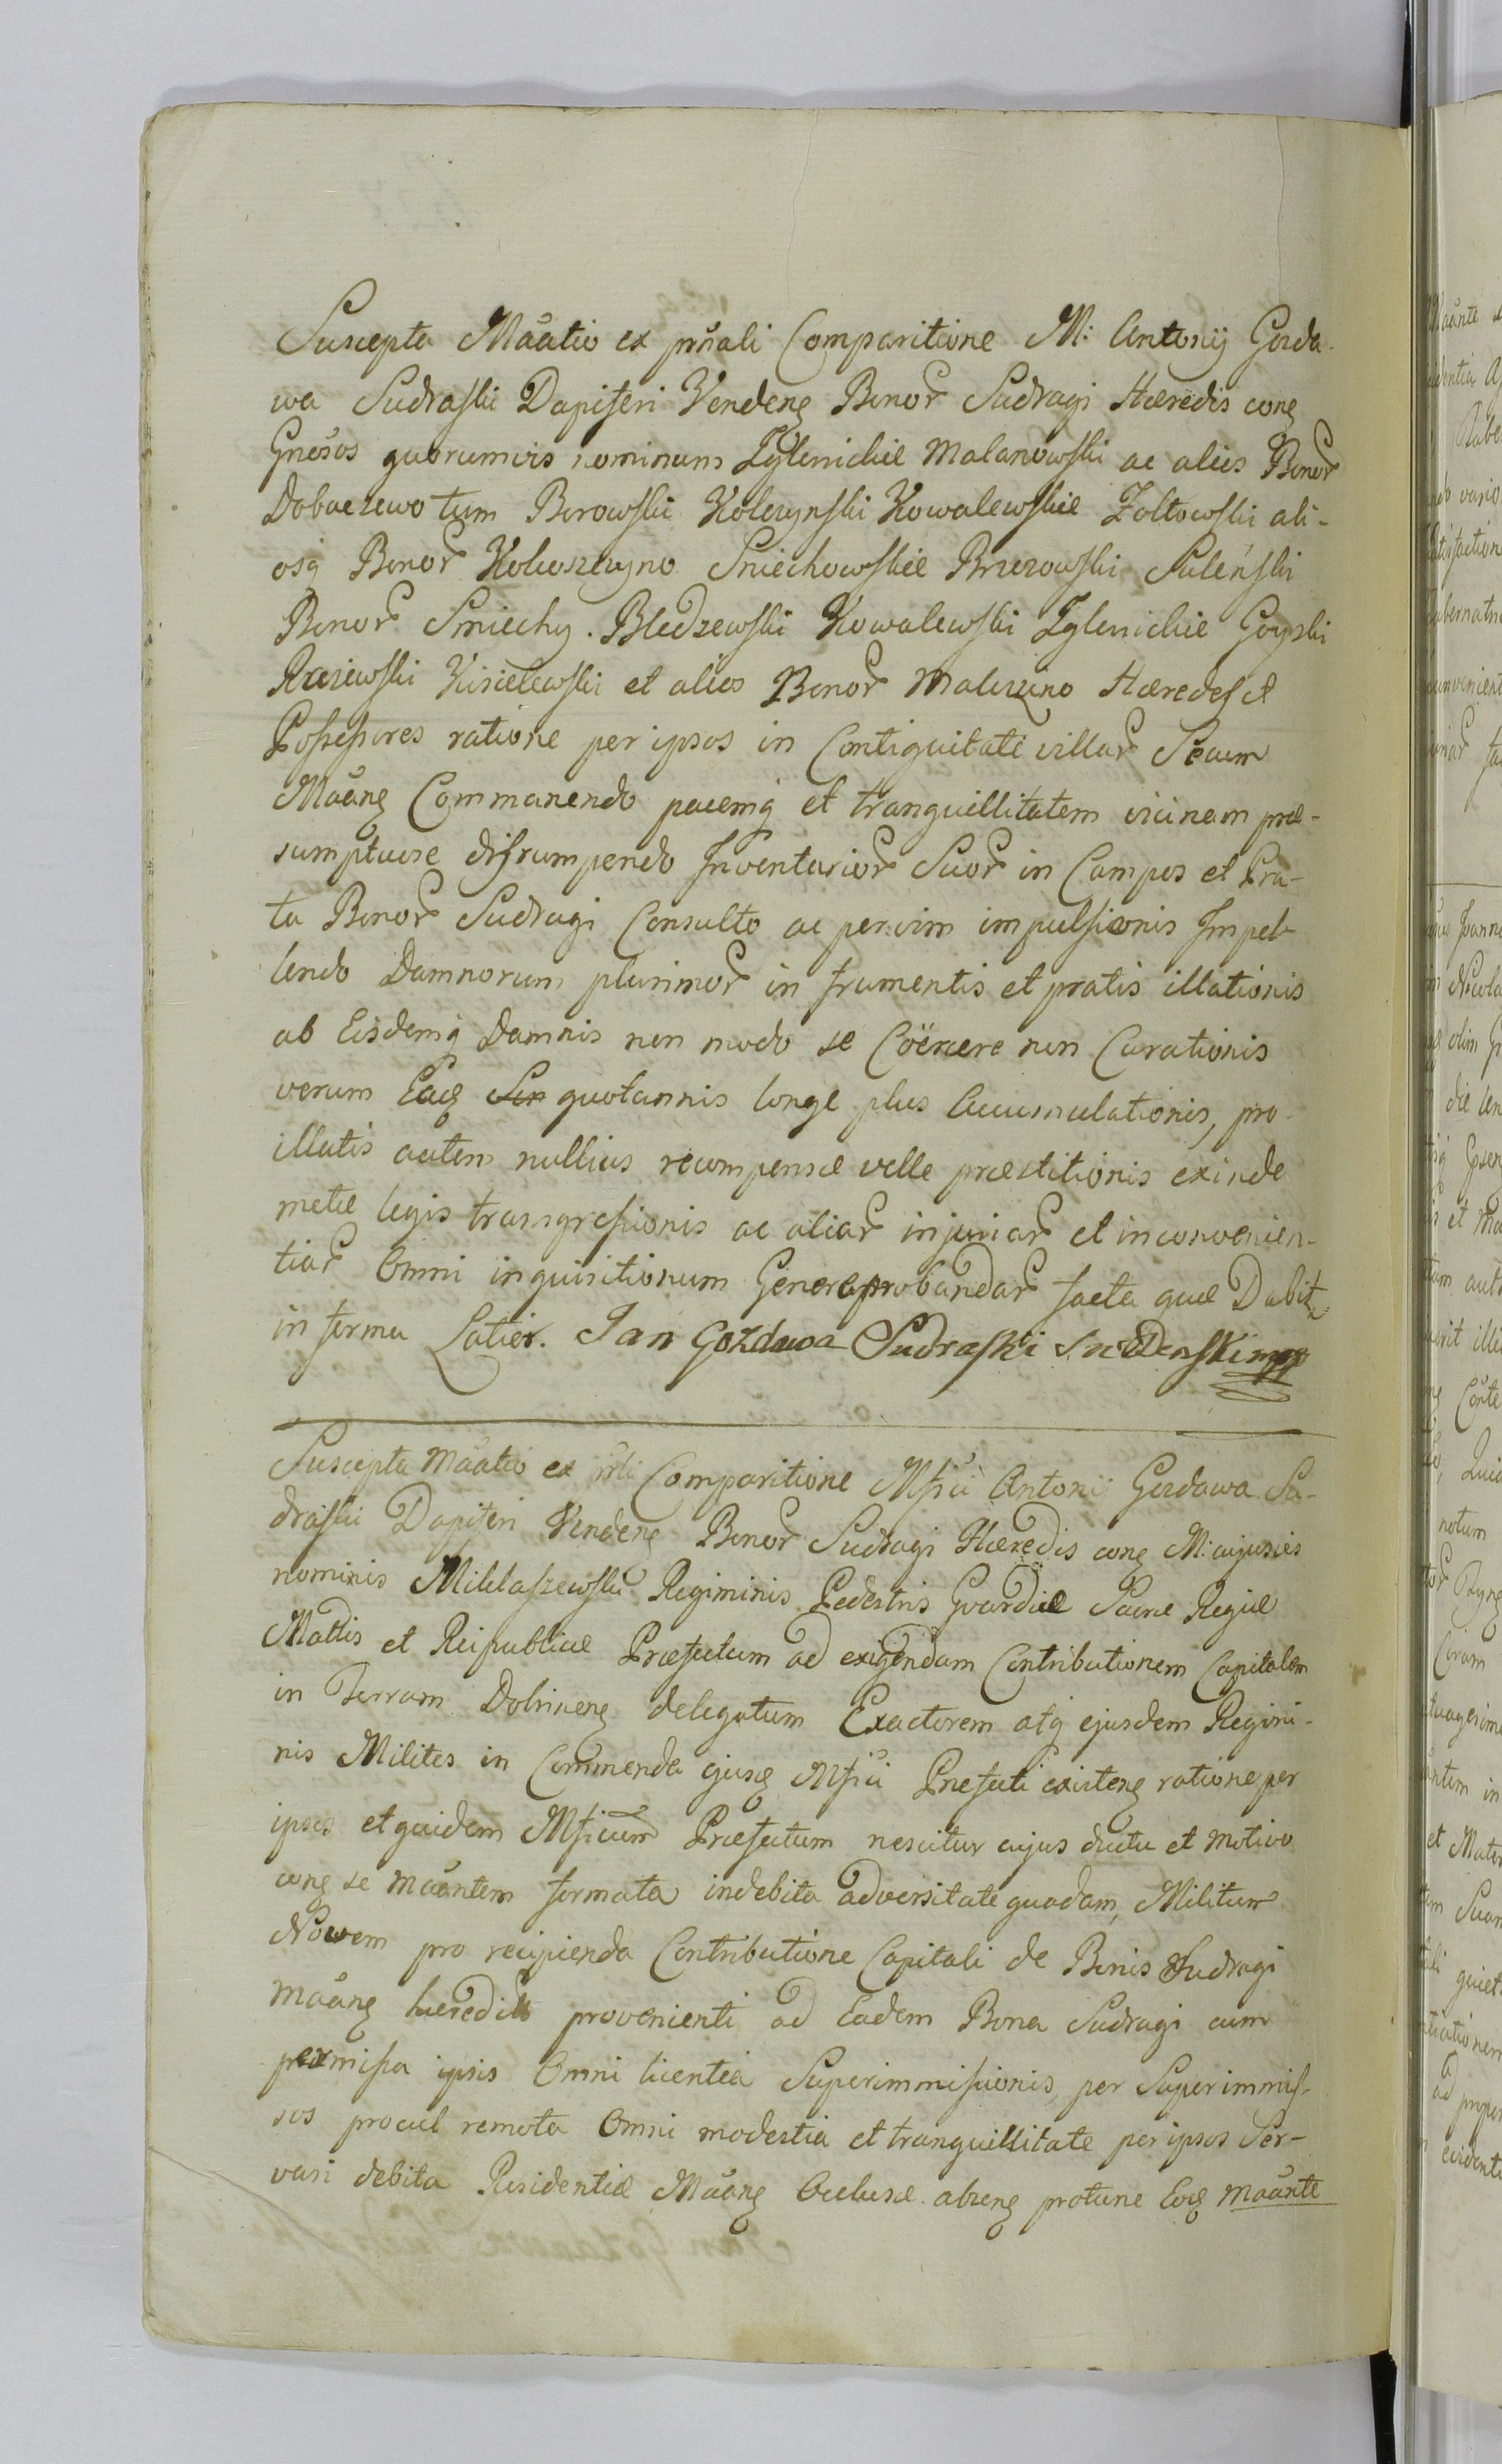 Suscepta Mãatio ex prńali Comparitione M: Antonij Gozda-
wa Sudraski Dapiferi Venden̄ Bonor̃ Sudragi Hæredis con̄
Gnẽsos quorumvis nominum Zglenickie Malanowski ac alios Bonor̃
Dobaczewo tum Borowski Kolczynski Kowalewskie Zołtowski ali-
osq̃ Bonor̃ Kokoszczyno Sniechowskie Brzezowski Suleński
Bonor̃ Sniechy. Bledzewski Kowalewski Zglenickie Goyski
Rzeszewski Kisielewski et alios Bonor̃ Malezyno Hæredes et
Possessores ratione per ipsos in Contiguitate villar̃ Secum
Mãan̄ Commanendo pacemq̃ et tranquillitatem vicinam præ-
sumptuose disrumpendo Inventarior̃ Suor̃ in Campos et Pra-
ta Bonor̃ Sudragi Consulto ac per vim impulsionis Impel-
lendo Damnorum plurimor̃ in frumentis et pratis illationis
ab Eisdemq̃ Damnis non modo se Coërcere non Curationis
verum Eaq̃ quotannis longe plus Accumulationis, pro
illatis autem nullius recompensæ velle præstitionis exinde
metæ legis transgressionis ac aliar̃ injuriar̃ et inconvenien-
tiar̃ Omni inquisitionum Genere probandar̃ facta quæ Dabit̃
in forma Latior. Jan Gozdawa Sudraski mpp
Suscepta Mãatio ex Comparitione Mfici Antonij Gozdawa Su-
draski Dapiferi Venden̄ Bonor̃ Sudragi Hæredis con̄ M: cujusvis
nominis Miklaszewski Regiminis Pedestris Gvardiæ Sacræ Regiæ
Mattis et Reipublicæ Præfectum ad exigendam Contributionem Capitalem
in Terram Dobrinen̄ delegatum Exactorem atq̃ ejusdem Regimi-
nis Milites in Commenda ejusd̄ Mfici Præfecti existen̄ ratione per
ipsos et quidem Mficum Præfectum nescitur cujus ductu et motivo
con̄ se Mãantem formata indebita adversitate quadam, Militum
Novem pro recipienda Contributione Capitali de Bonis Sudragi
Mãan̄ hæredit̃ provenienti ad Eadem Bona Sudragi cum
permissa ipsis Omni licentia Superimmissionis, per Superimmis-
sos procul remota Omni modestia et tranquillitate per ipsos Ser-
vari debita Residentiæ Mãan̄ Occlusæ absen̄ protunc Eod̄ Mãante